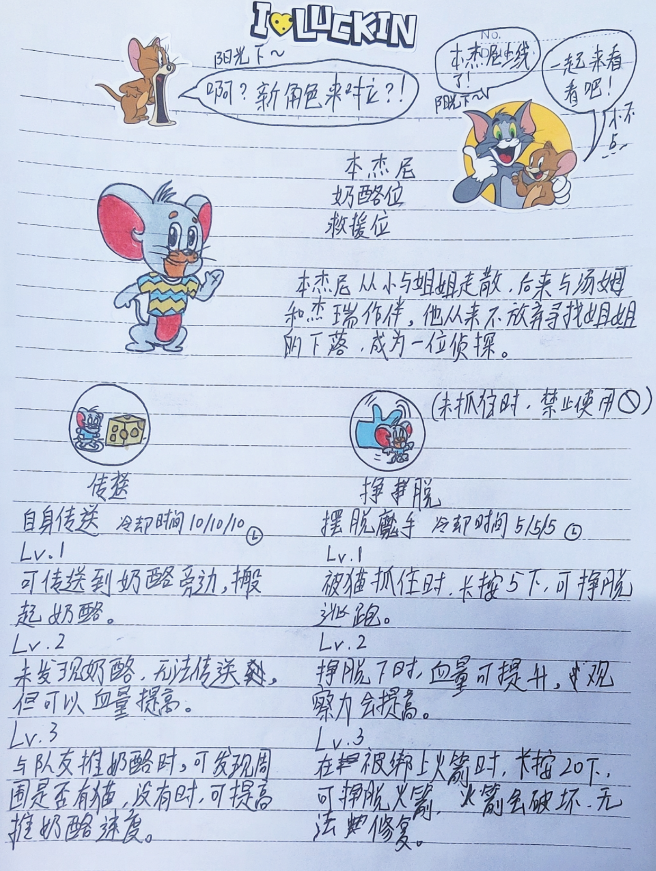 I LUCKIN
No.
阳光下~
啊？新角色来对应？！
本杰尼上线
了！
阳光下~
一起来看
看吧！
小不
点
本杰尼
奶酪位
救援位
本杰尼从小与姐姐走散，后来与汤姆
和杰瑞作伴，他从来不放弃寻找姐姐
的下落，成为一位侦探。
(未抓住时，禁止使用)
传送
挣脱
自身传送 冷却时间10/10/10
摆脱魔手 冷却时间5/5/5
Lv.1
可传送到奶酪旁边，搬
起奶酪。
Lv.2
未发现奶酪，无法传送，
但可以血量提高。
Lv.3
与队友推奶酪时，可发现周
围是否有猫，没有时，可提高
推奶酪速度。
Lv.1
被猫抓住时，长按5下，可挣脱
逃跑。
Lv.2
挣脱下时，血量可提升，观
察力会提高。
Lv.3
在被绑上火箭时，长按20下，
可挣脱火箭，火箭会破坏，无
法修复。